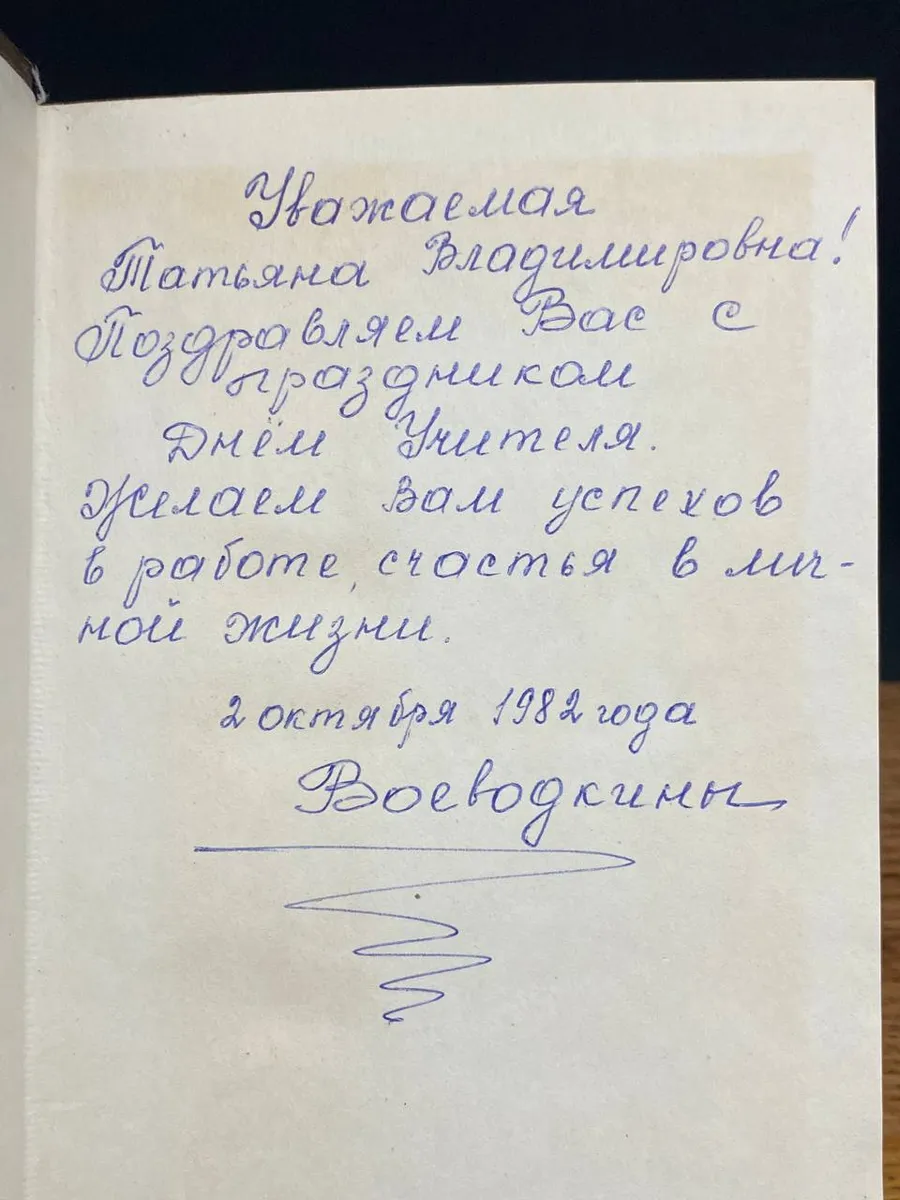 Уважаемая
Татьяна Владимировна!
Поздравляем Вас с
праздником
Днём Учителя.
Желаем Вам успехов
в работе, счастья в лич-
ной жизни.
2 октября 1982 года
Воеводкины